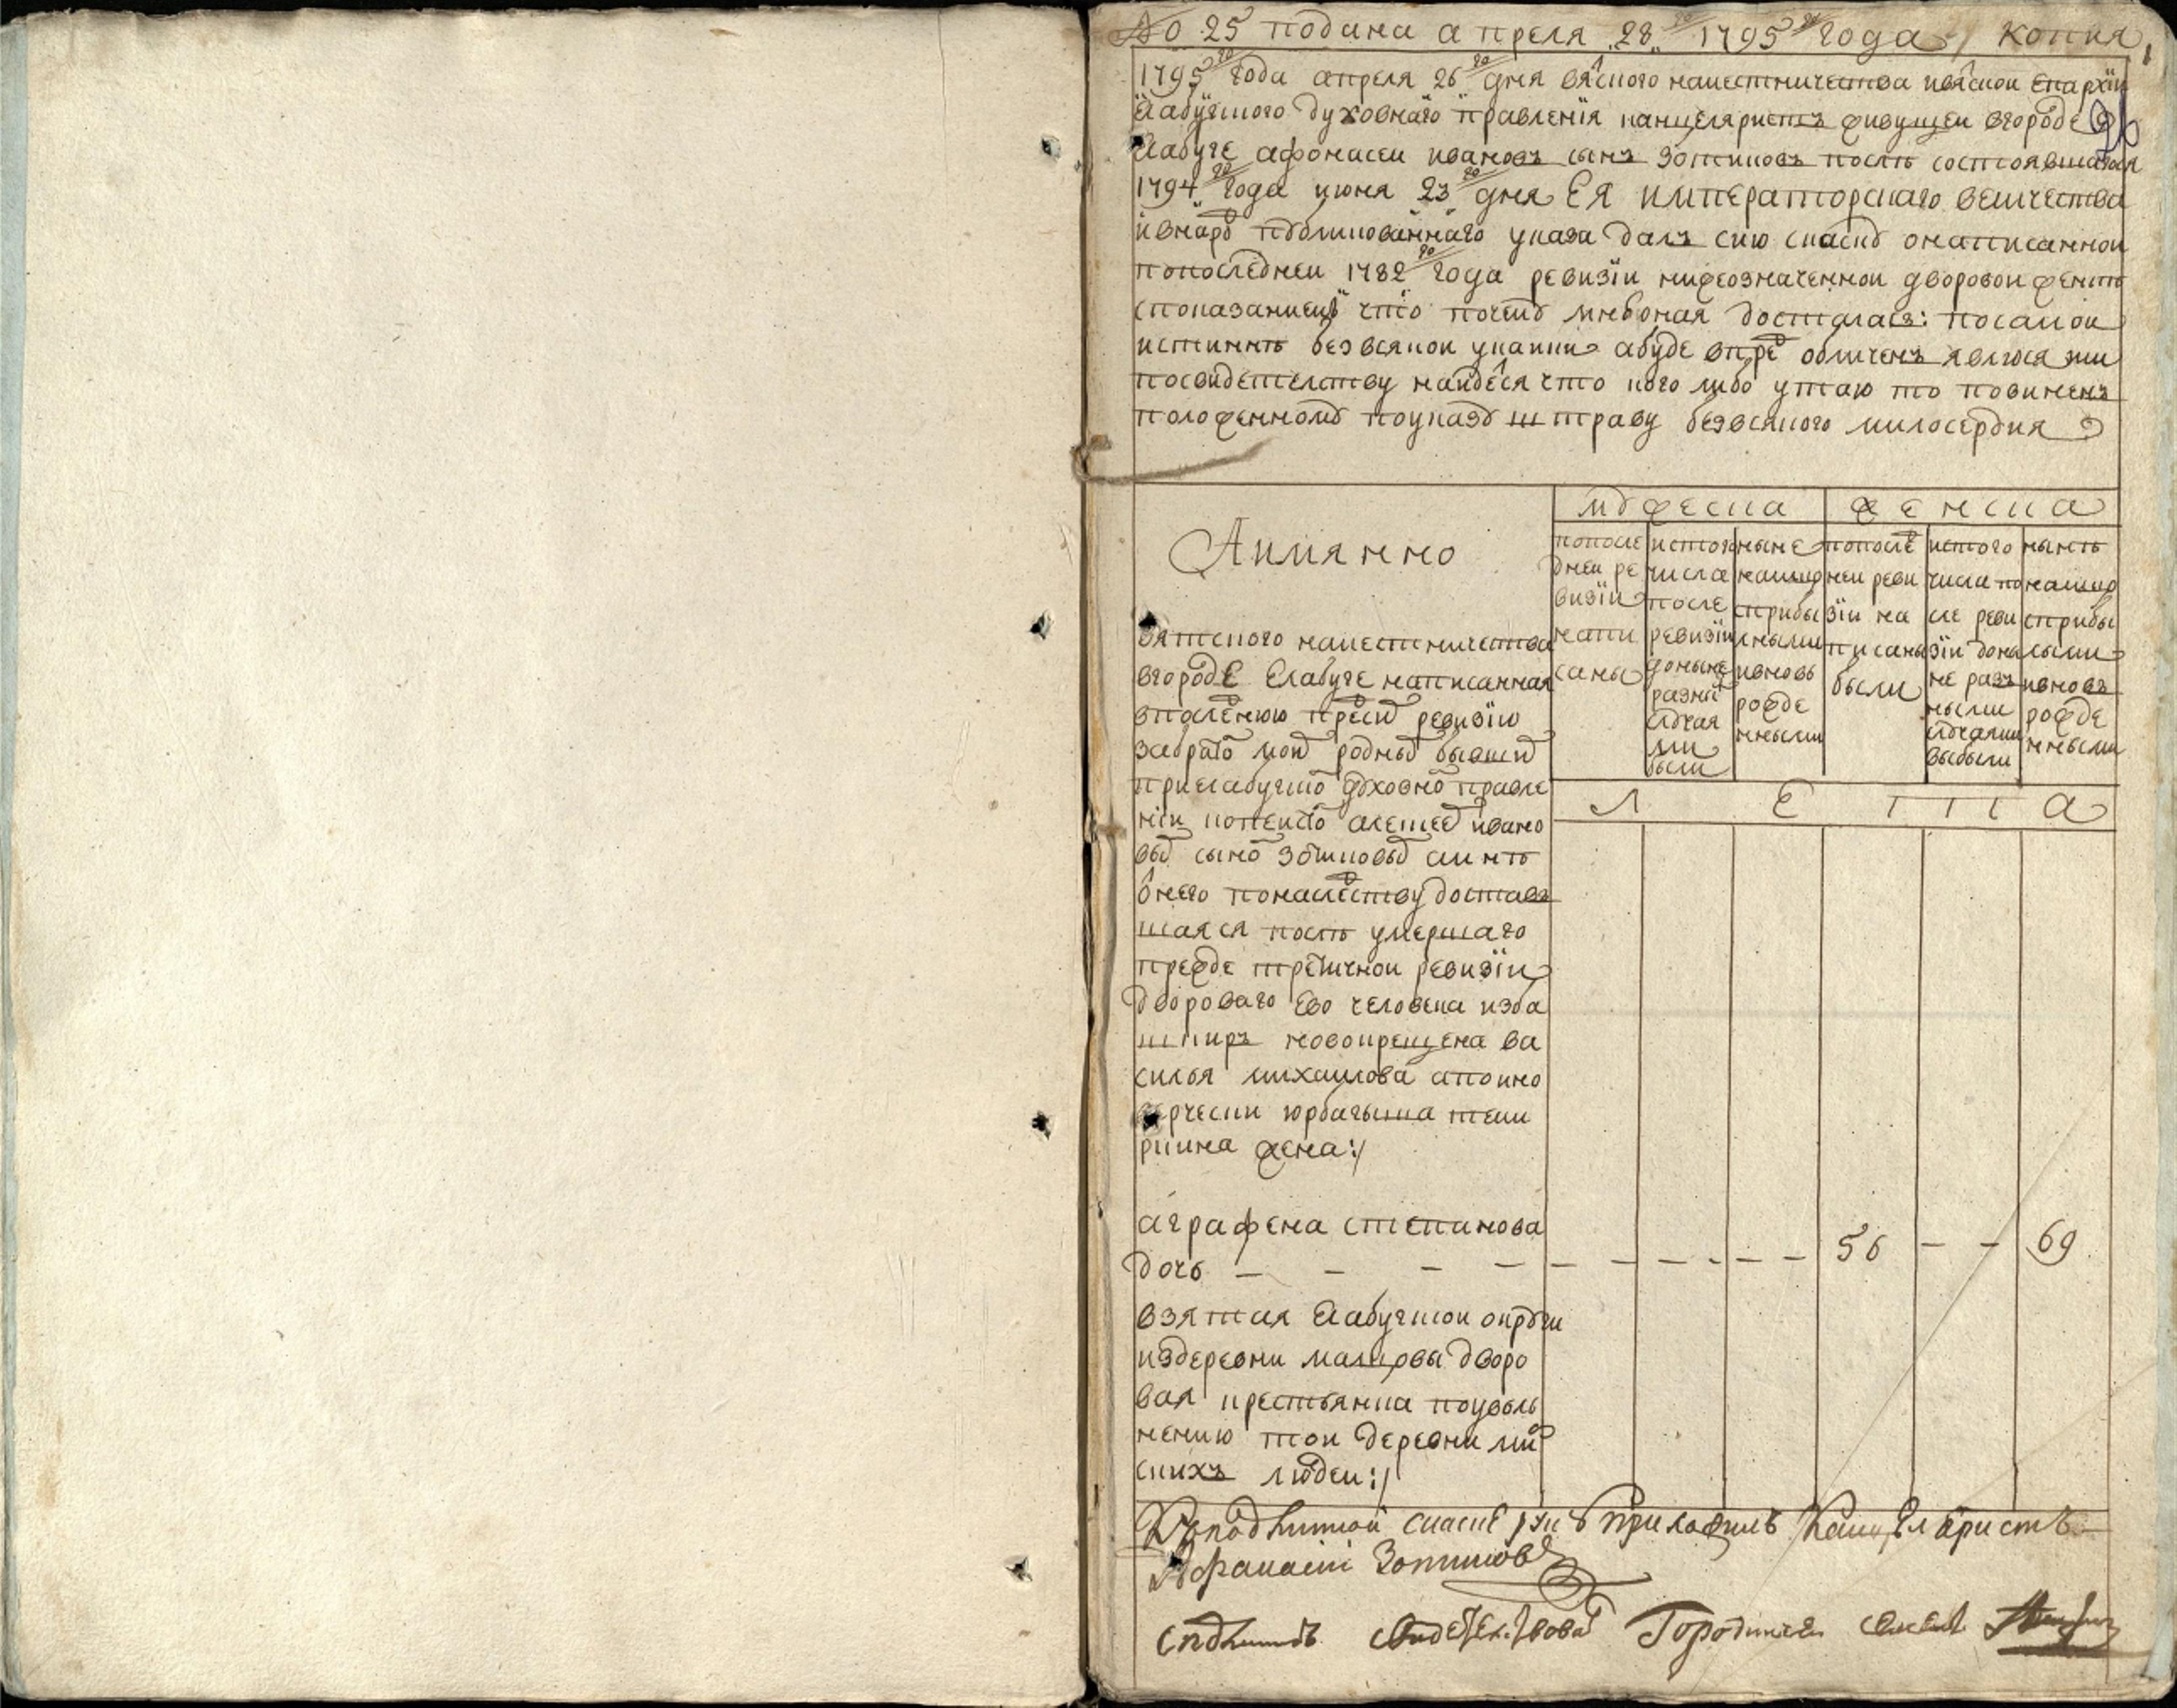 № 25 подана апреля 28 го 1795 го года / копия 1
1795 го года апреля 26 го дня вяцкого наместничества ивяцкои епархїи
Елабуского духовнаго правленїя канцеляристъ живущеи вгороде
Елабуге афонасеи ивановъ сынъ зотиковъ после состоявшагося
1794 го года июня 23 го дня Ея императорскаго величества
ивнародъ публикованнаго указа далъ сию скаску онаписаннои
попоследнеи 1782 го года ревизїи нижеозначеннои дворовои женке
споказаниемъ что почему мне оная досталась: посамои
истинне безвсякои утаики абуде впредь обличенъ явлюся или
посвидетелству найдеся что кого либо утаю то повиненъ
положенному поуказу штрафу безвсякого милосердия
мужеска женска
Аимянно
попоследнеи ревизїи написаны
истого числа после ревизїи доныне разными случаями выбыли
ныне налицо сприбылыми ивновь рожденными
попоследнеи ревизїи написаны были
истого числа после ревизїи доныне разными случаями выбыли
ныне налицо сприбылыми ивновь рожденными
Л е т а
вятского наместничества
вгороде Елабуге написанная
впоследнюю пред сим ревизїю
забратом моим родным бывшим
приелабуском духовном правле
нїи копеистом алексеем ивано
вым сыном зотиковым аи мне
от него понаследству достав
шаяся после умершаго
прежде третичнои ревизїи
двороваго ево человека изба
шкиръ новокрещена ва
силья михаилова апоино
верчески юрбагыша теми
рина жена:/
аграфена степанова
дочь – – – – – – – – – – 56 – – 69
взятая Елабускои округи
издеревни малцовы дворо
вая крестьянка поуволь
нению тои деревни мир
скихъ людеи:/
Кподлиннои скаске руку приложилъ Канцеляристъ
Афанасии Зотиковъ
сподлинною свидетельствовалъ Городническ